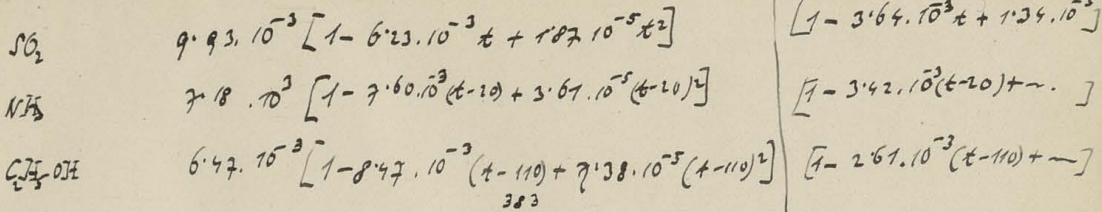 SO₂ 9·93. 10⁻³ [1 - 6·23. 10⁻³ t + 1·87 10⁻⁵ t²] [1 - 3·64. 10⁻³ t + 1·34. 10⁻⁵]
NH₃ 7·18 . 10³ [1 - 7·60. 10⁻³ (t-20) + 3·61. 10⁻⁵ (t-20)²] [1 - 3·42. 10⁻³ (t-20) + ~ . ]
C₂H₅OH 6·47. 10⁻³ [1 - 8·47. 10⁻³ (t-110) + 7·38. 10⁻⁵ (t-110)²] [1 - 2·61. 10⁻³ (t-110) + ~ ]
383